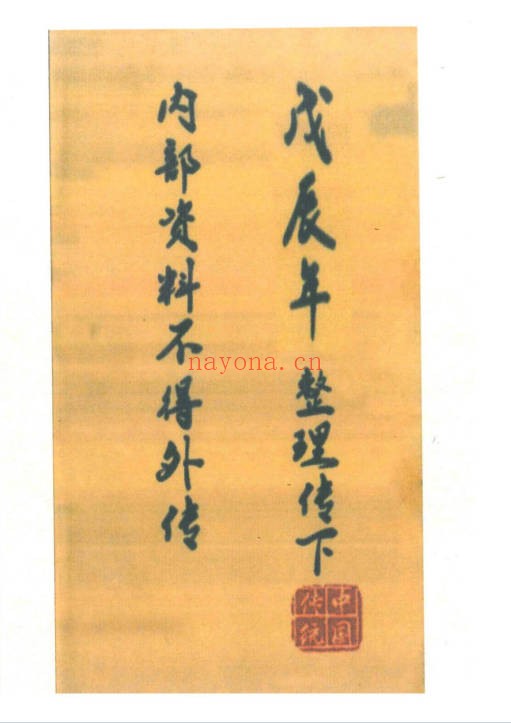 戊辰年 整理传下
内部资料不得外传
中国
传统
nayona.cn